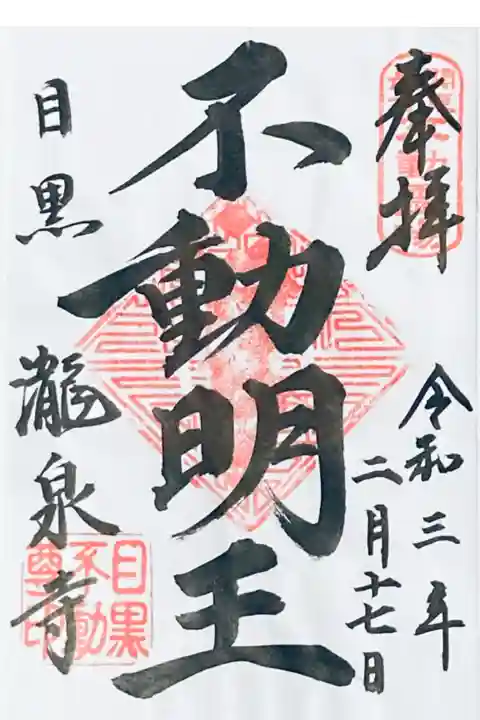 奉拝
令和三年
二月十七日
不動明王
目黒 瀧泉寺
目黒
不動
尊印